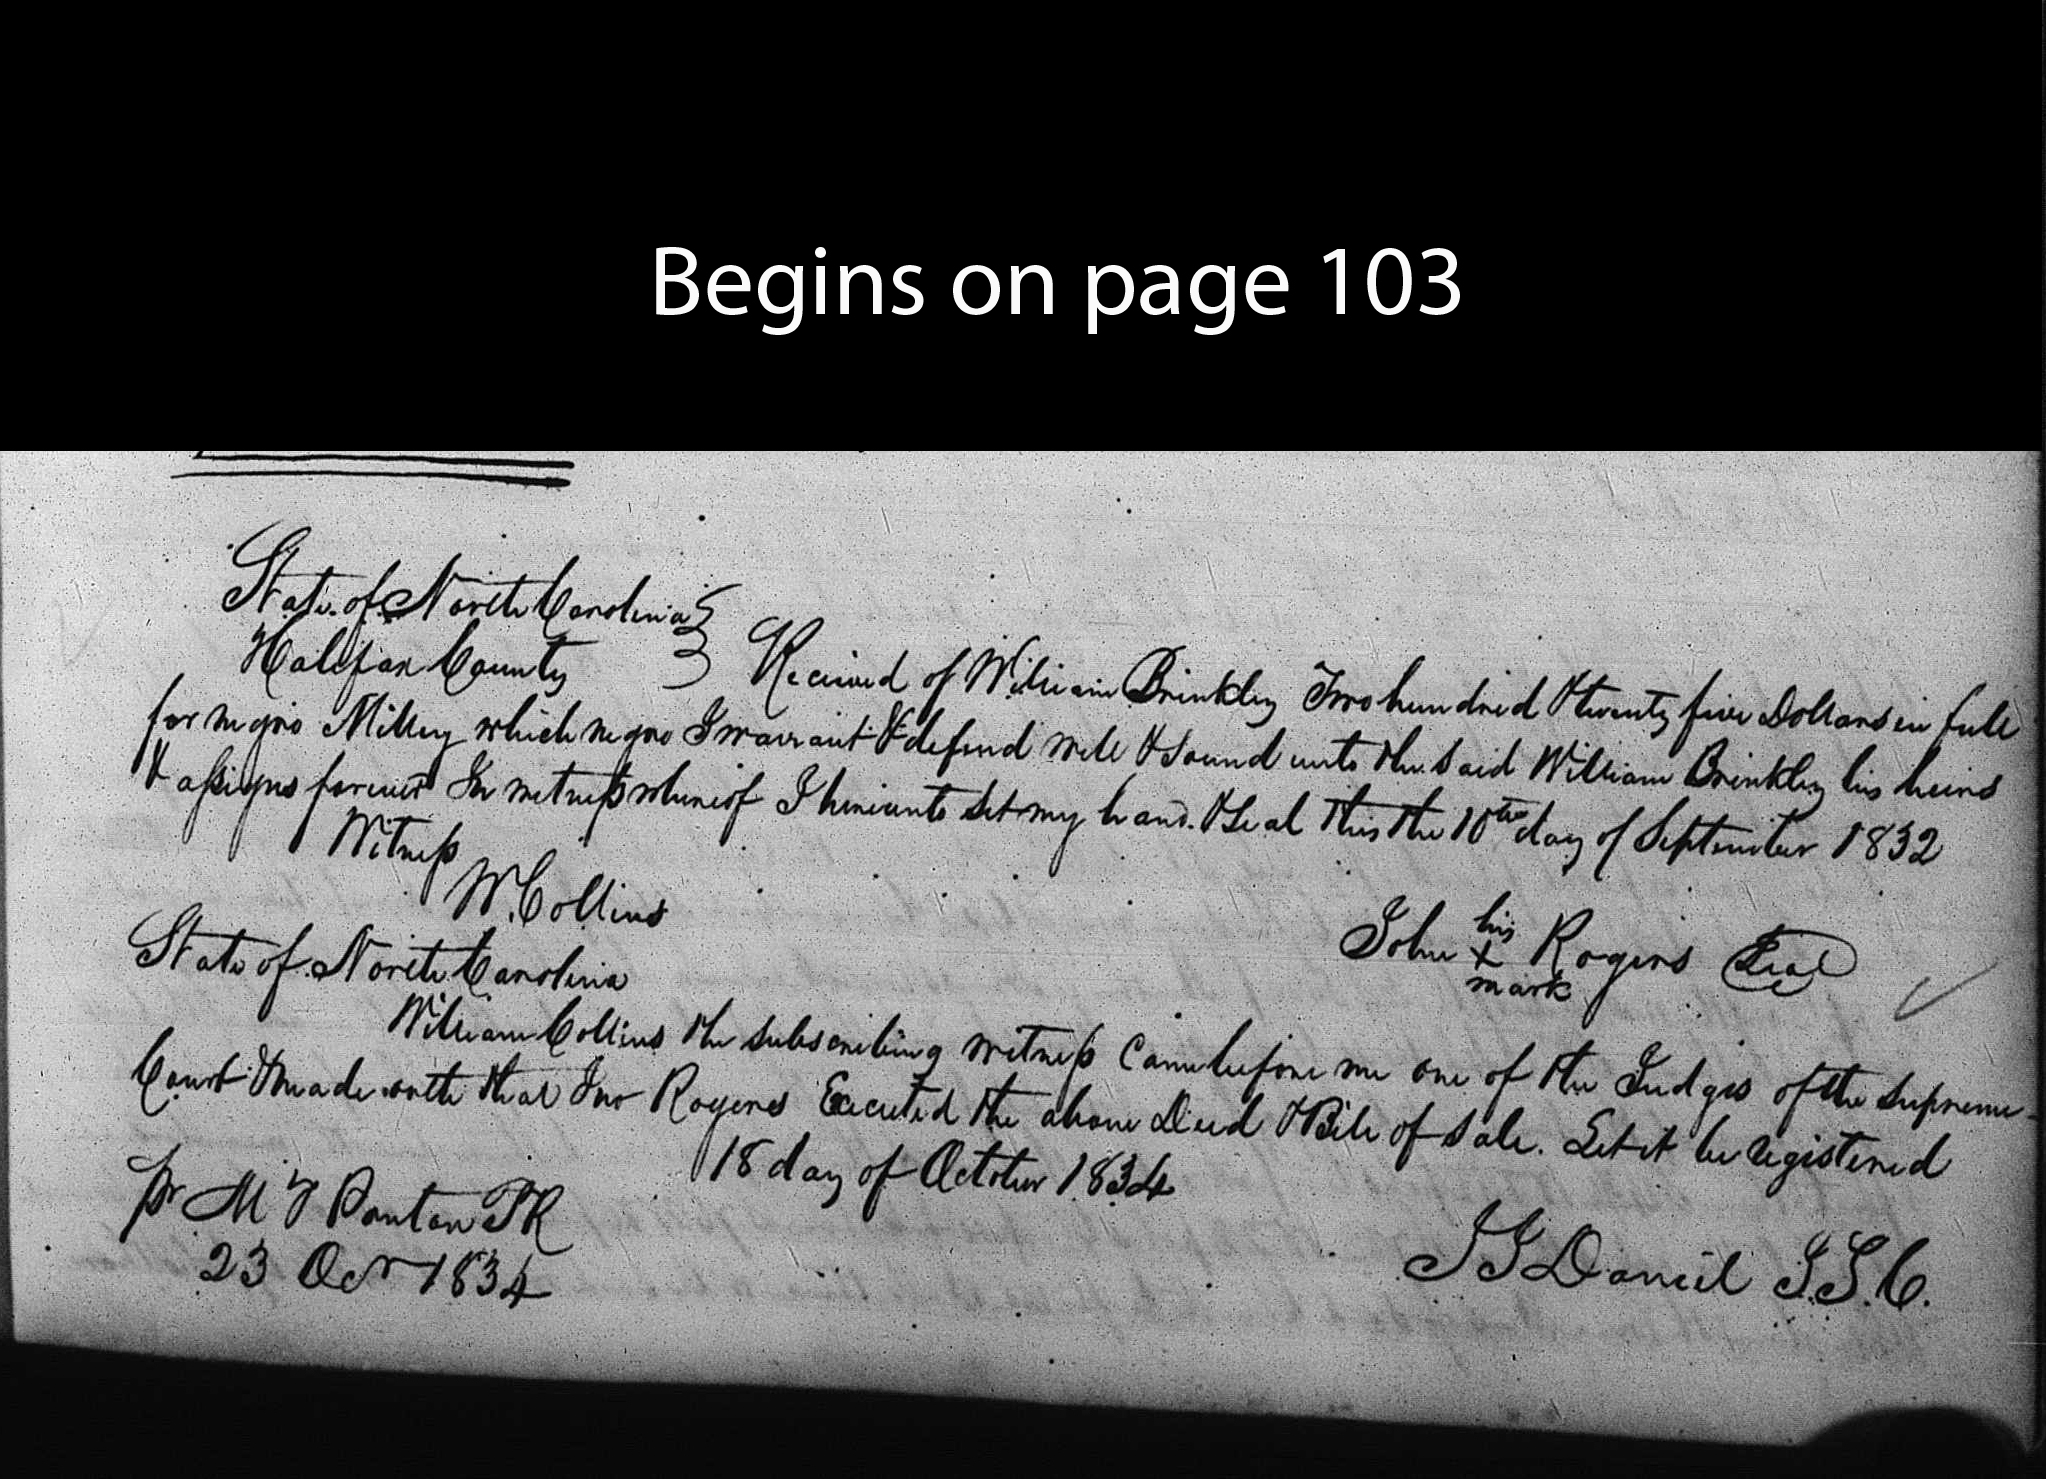 Begins on page 103
State of North Carolina
Halifax County } Received of William Brinkley Two hundred & twenty five Dollars in full
for negro Milley which negro I warrant & defend well & sound unto the said William Brinkley his heirs
& assigns forever In witness whereof I hereunto set my hand & Seal this the 10th day of September 1832
Witness
W. Collins
John his X mark Rogers Seal
State of North Carolina
William Collins the subscribing witness came before me one of the Judges of the Supreme
Court & made oath that Jno Rogers Executed the above Deed & Bill of Sale. Let it be registered
18 day of October 1834
J J Daniel J. S. C.
pr M Ponton PR
23 Oct 1834